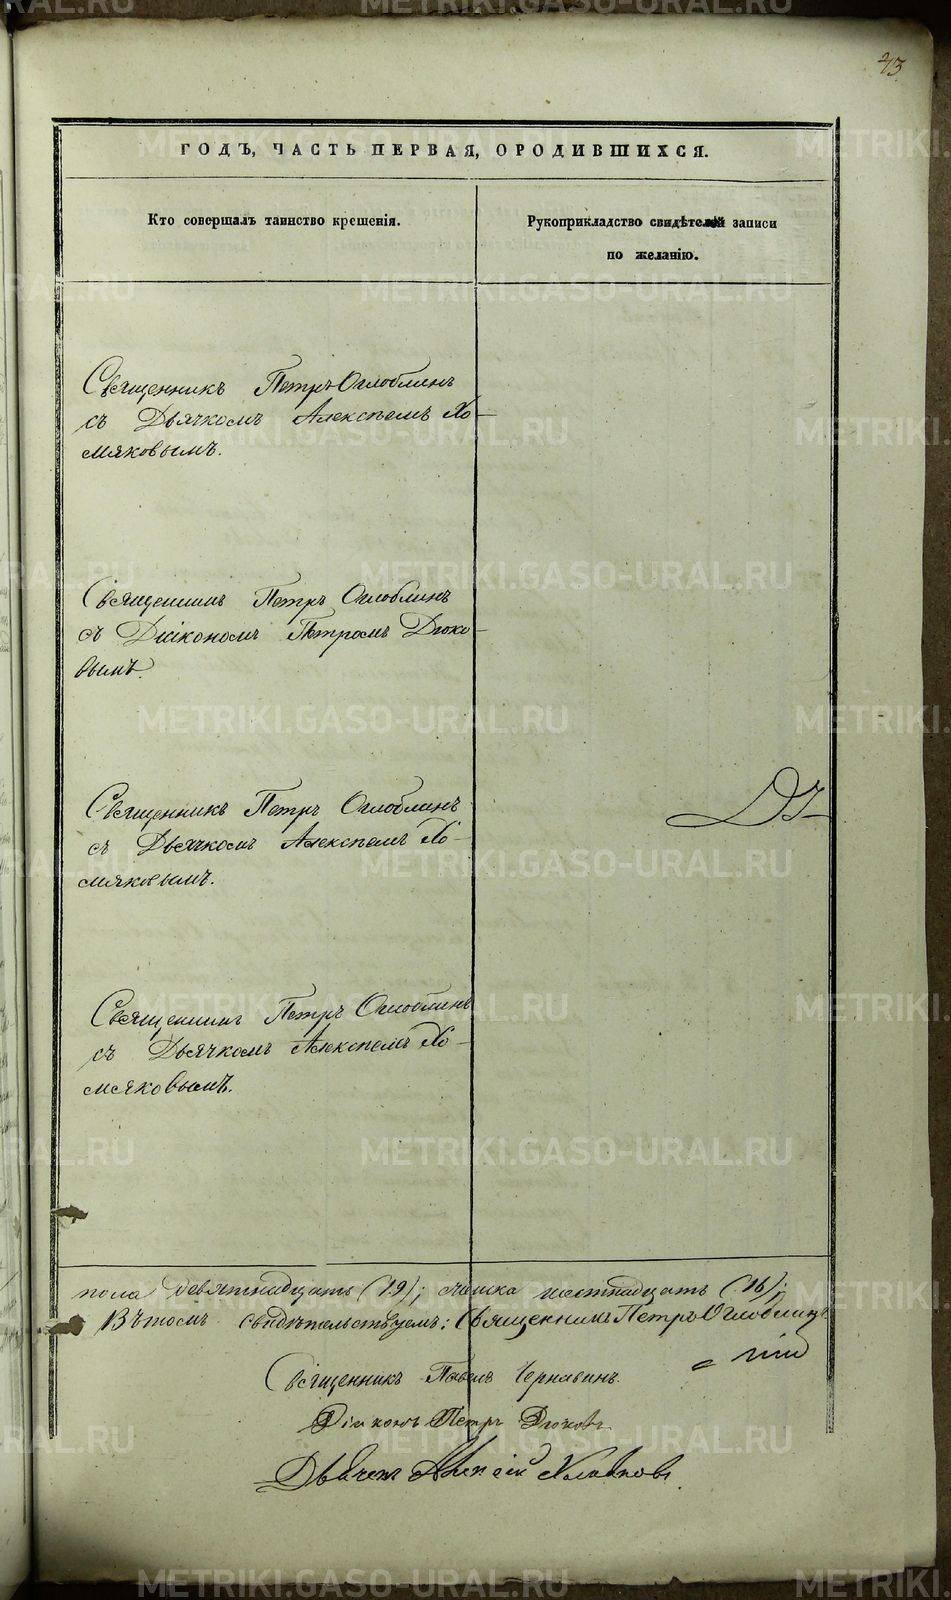 73
ГОДЪ, ЧАСТЬ ПЕРВАЯ, ОРОДИВШИХСЯ.
Кто совершалъ таинство крещенія.
Рукоприкладство свидѣтелей записи
по желанію.
Священникъ Петръ Оглоблинъ
съ Дьячкомъ Алексѣемъ Хо-
мяковымъ.
Священникъ Петръ Оглоблинъ
съ Діакономъ Петромъ Дюко-
вымъ.
Священникъ Петръ Оглоблинъ
съ Дьячкомъ Алексѣемъ Хо-
мяковымъ.
Священникъ Петръ Оглоблинъ
съ Дьячкомъ Алексѣемъ Хо-
мяковымъ.
пола девятнадцать (19); женска шестнадцать (16);
Въ томъ свидѣтельствуемъ: Священникъ Петръ Оглоблинъ
Священникъ Павелъ Чернавинъ.
Діаконъ Петръ Дюковъ
Дьячекъ Алексій Хомяковъ
METRIKI.GASO-URAL.RU